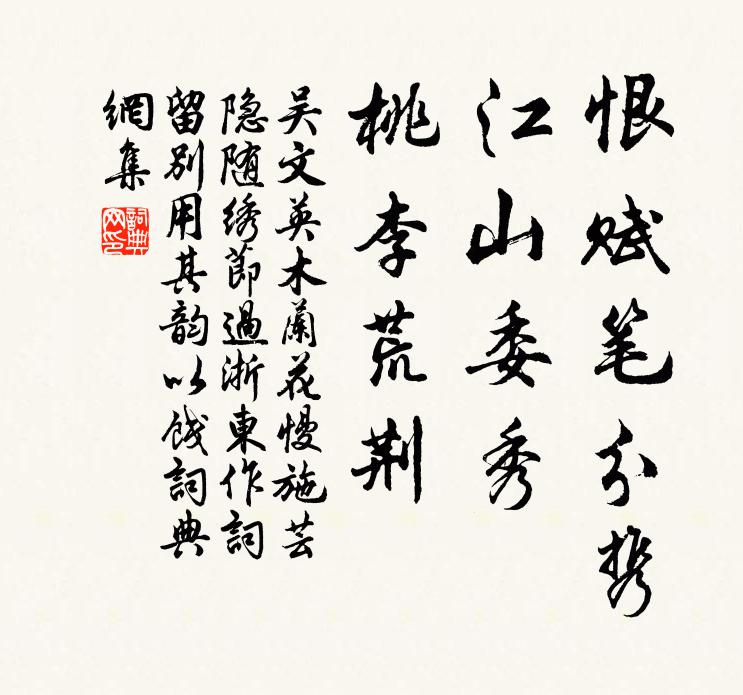 恨赋笔分携
江山委秀
桃李荒荆
吴文英木蘭花慢施芸
隐随绣節過浙東作詞
留别用其韵以饯詞典
網集
詞典网印